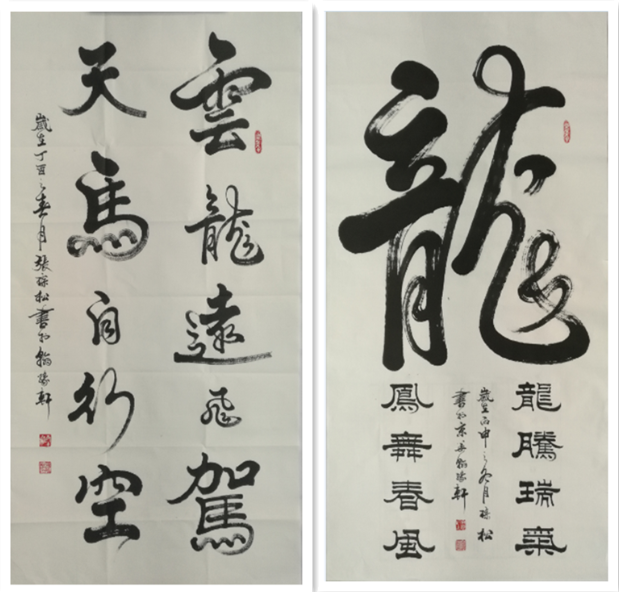 雲龍遠飛駕
天馬自行空
歲在丁酉之春月張松書於翰軒
龍
龍騰瑞氣
歲在丙申之冬月松
書於京翰軒
鳳舞春風